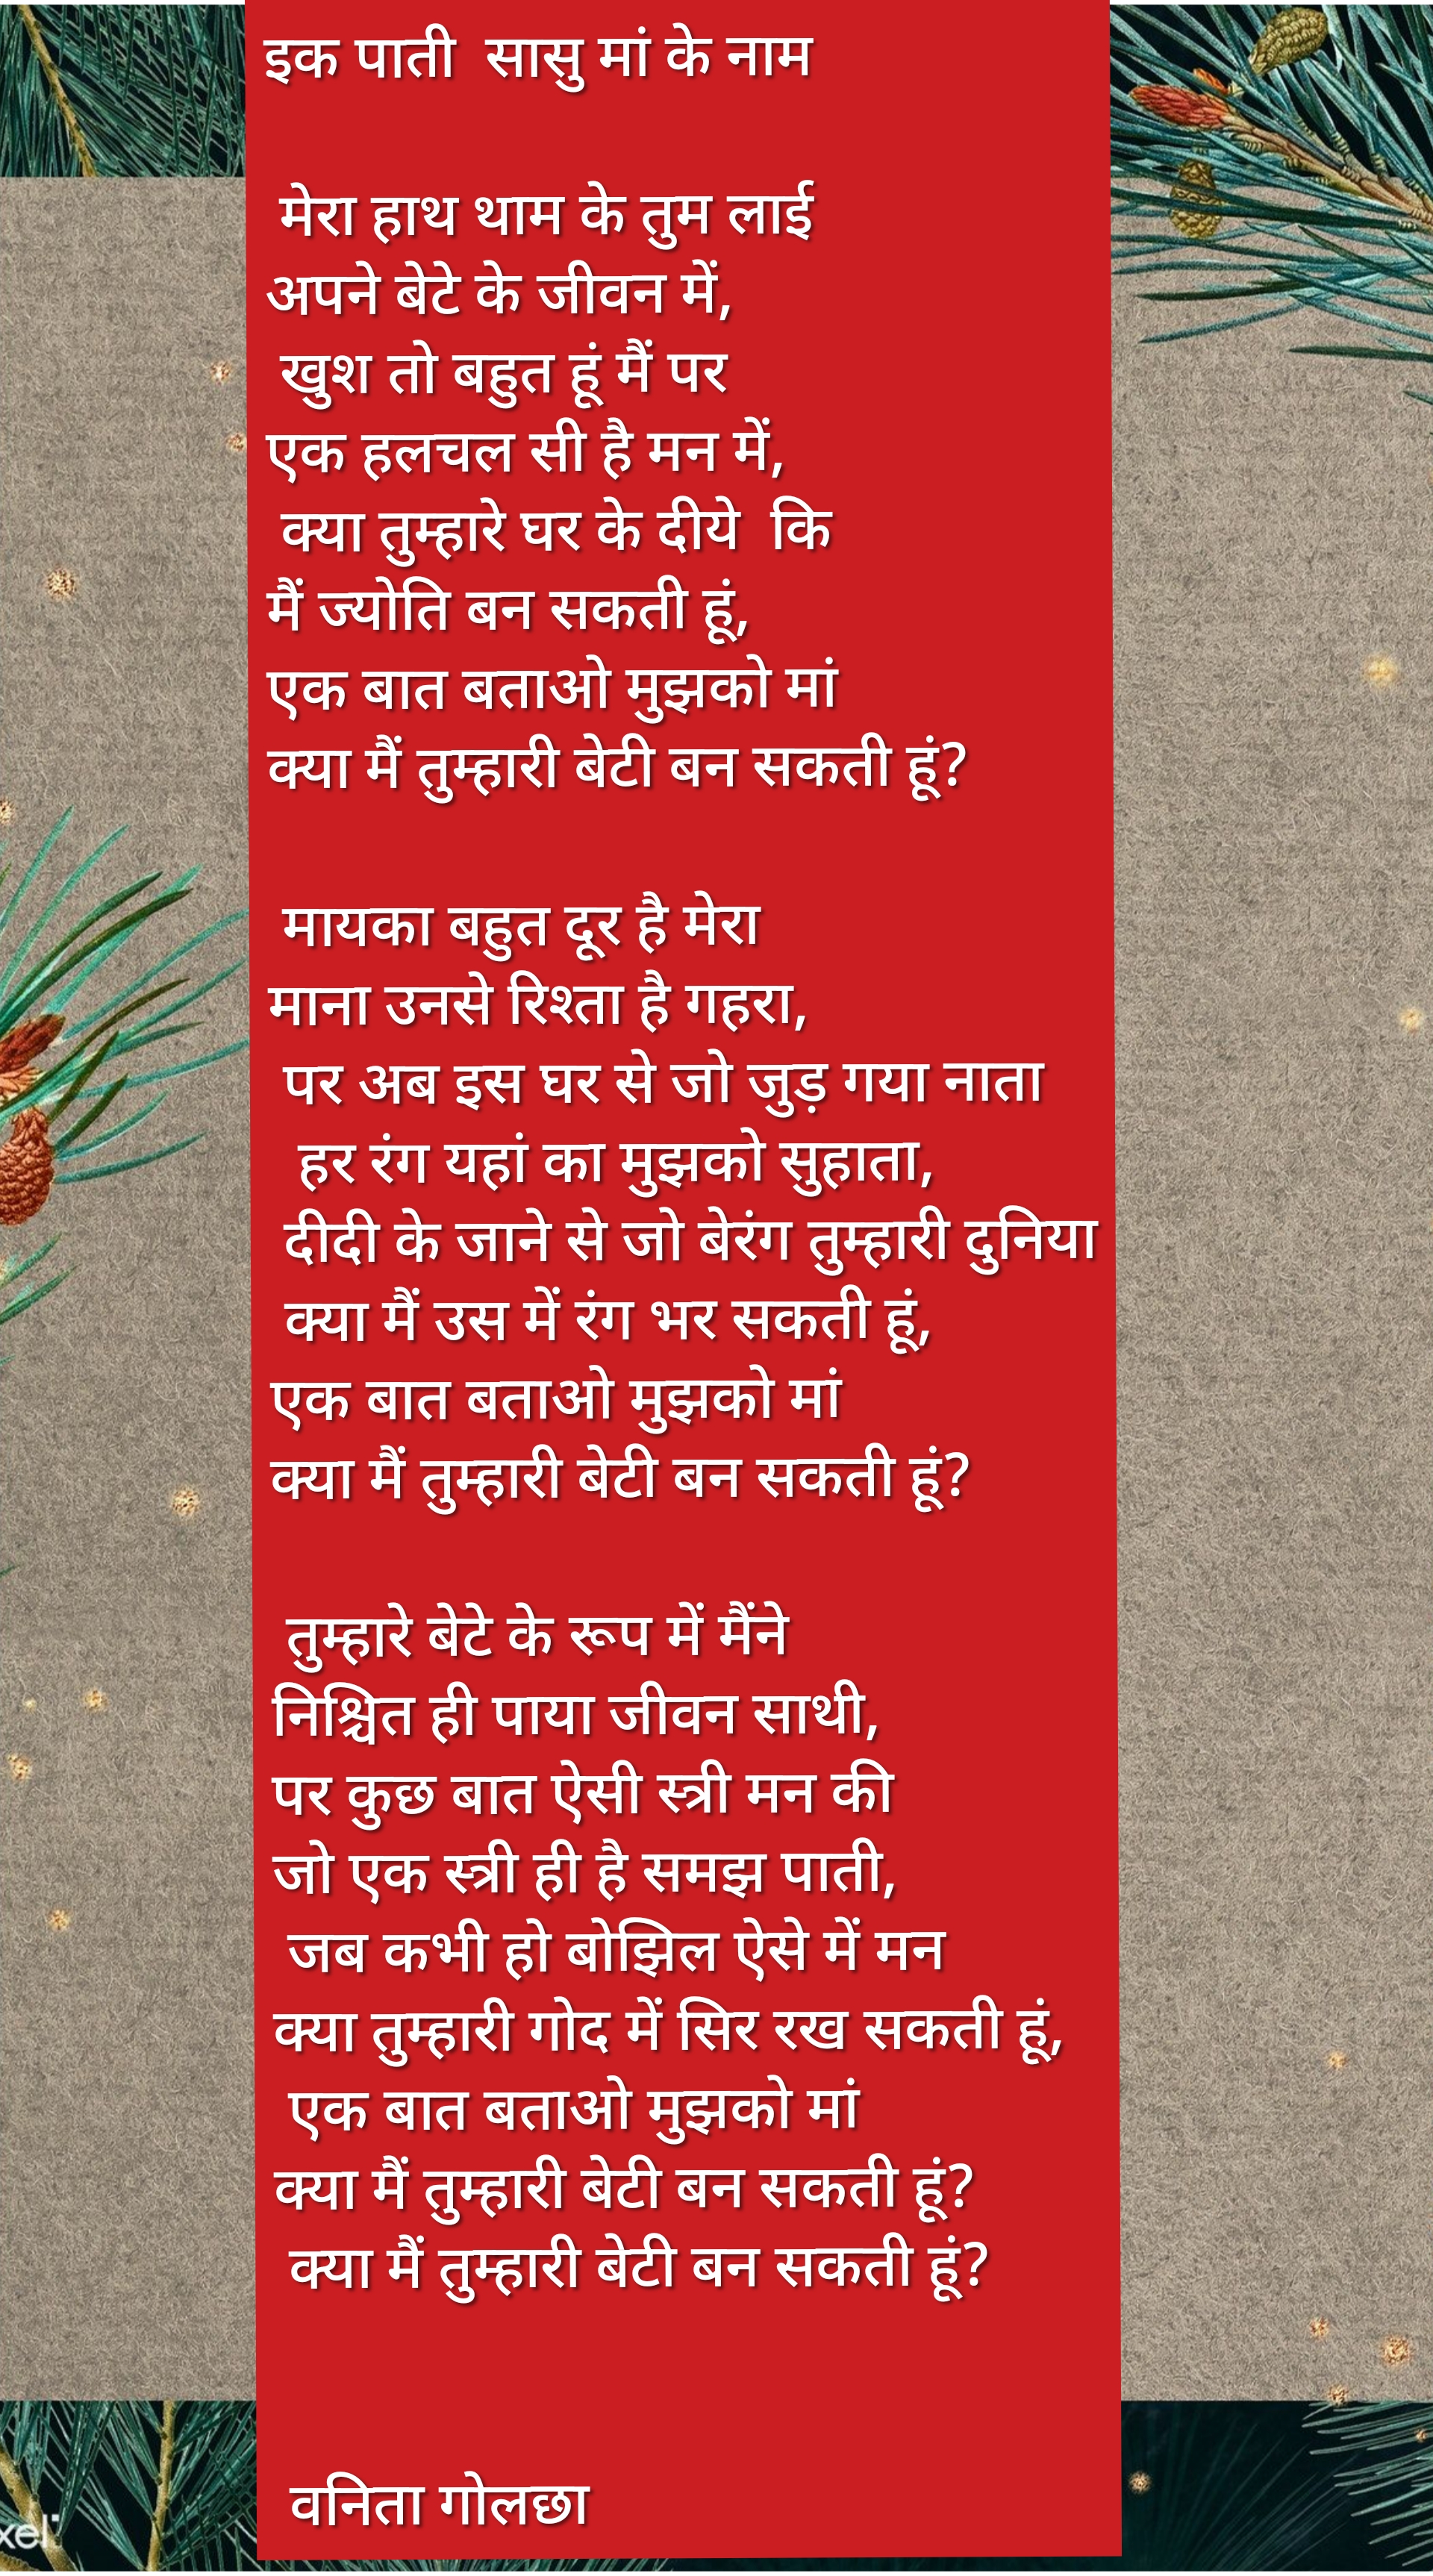 इक पाती  सासु मां के नाम
मेरा हाथ थाम के तुम लाई
अपने बेटे के जीवन में,
खुश तो बहुत हूं मैं पर
एक हलचल सी है मन में,
क्या तुम्हारे घर के दीये  कि
मैं ज्योति बन सकती हूं,
एक बात बताओ मुझको मां
क्या मैं तुम्हारी बेटी बन सकती हूं?
मायका बहुत दूर है मेरा
माना उनसे रिश्ता है गहरा,
पर अब इस घर से जो जुड़ गया नाता
हर रंग यहां का मुझको सुहाता,
दीदी के जाने से जो बेरंग तुम्हारी दुनिया
क्या मैं उस में रंग भर सकती हूं,
एक बात बताओ मुझको मां
क्या मैं तुम्हारी बेटी बन सकती हूं?
तुम्हारे बेटे के रूप में मैंने
निश्चित ही पाया जीवन साथी,
पर कुछ बात ऐसी स्त्री मन की
जो एक स्त्री ही है समझ पाती,
जब कभी हो बोझिल ऐसे में मन
क्या तुम्हारी गोद में सिर रख सकती हूं,
एक बात बताओ मुझको मां
क्या मैं तुम्हारी बेटी बन सकती हूं?
क्या मैं तुम्हारी बेटी बन सकती हूं?
वनिता गोलछा